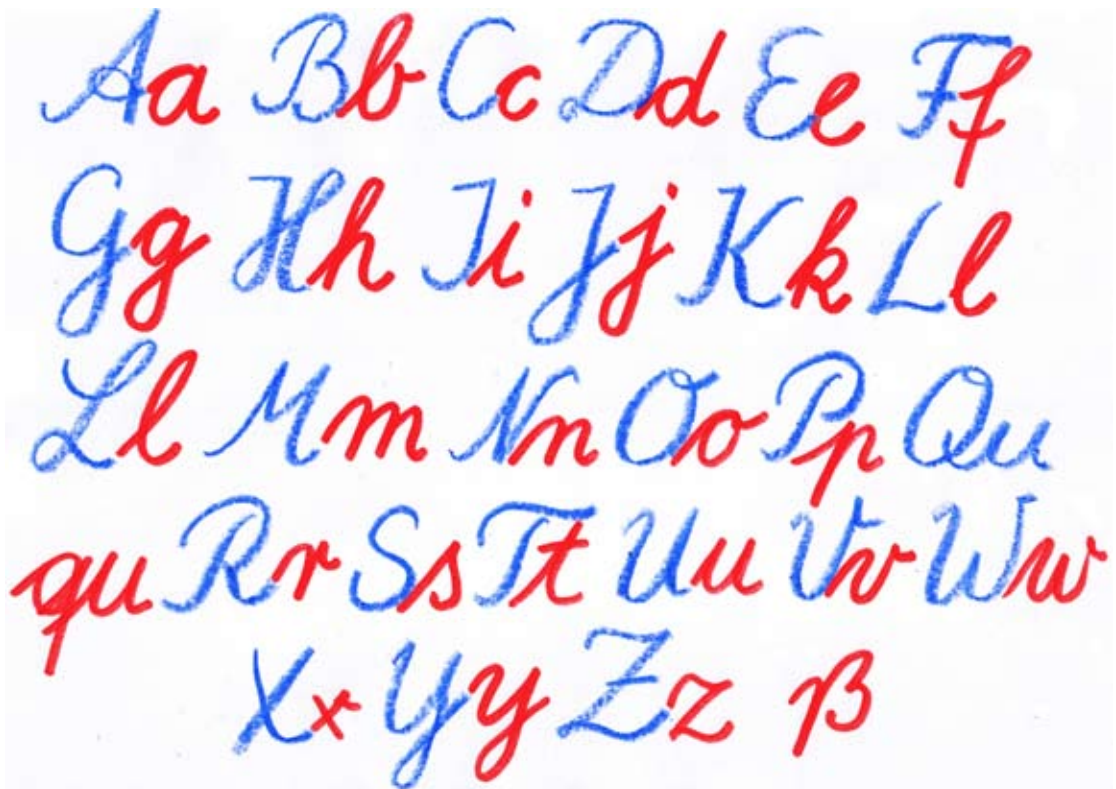 Aa Bb Cc Dd Ee Ff
Gg Hh Ii Jj Kk Ll
Ll Mm Nn Oo Pp Qu
qu Rr Ss Tt Uu Vv Ww
Xx Yy Zz ß